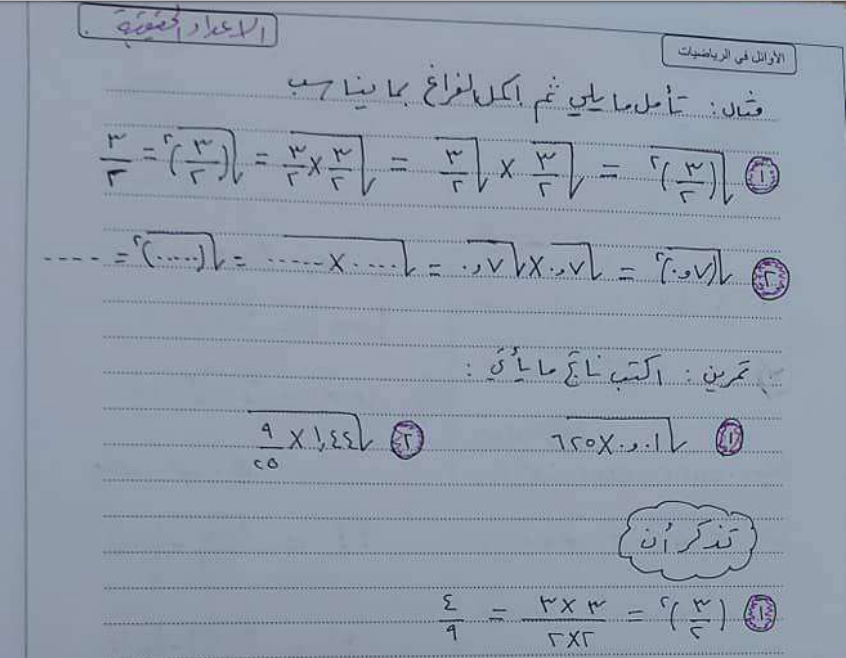 الاعداد الحقيقية
الأوائل في الرياضيات
مثال: تأمل ما يلي ثم اكمل الفراغ بما يناسب
١ √(٣/٢)² = √٣/٢ × √٣/٢ = √٣/٢×٣/٢ = √(٣/٢)² = ٣/٢
٢ √(٠,٧)² = √٠,٧ × √٠,٧ = √..... × ..... = √(.....)² = ....
تمرين: اكتب ناتج ما يأتي:
١ √٠,٠١ × ٦٢٥ ٢ √١,٤٤ × ٩/٢٥
تذكر أن
١ (٣/٢)² = ٣×٣/٢×٢ = ٤/٩